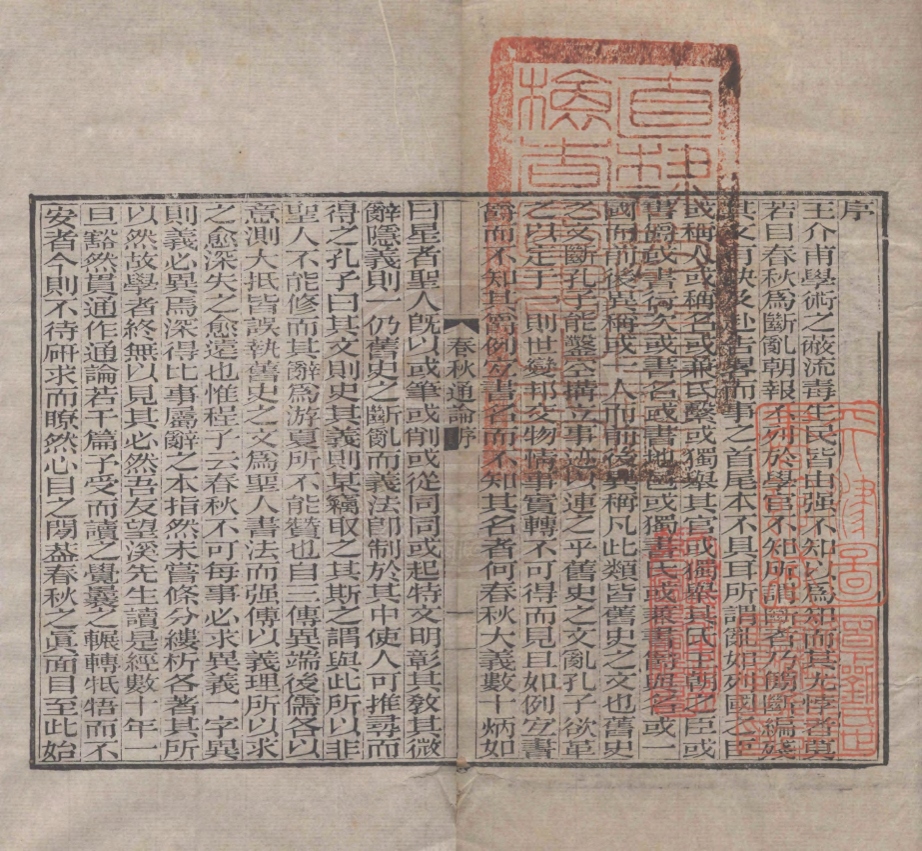 序
王介甫學術之蔽流毒生民皆由强不知以爲知而其尤悖者莫
若目春秋爲斷亂朝報不列於學官不知所謂斷者乃簡斷編殘
其文有缺及赴告畧而事之首尾本不具耳所謂亂如列國之臣
或稱人或稱名或兼氏繫或獨舉其官或獨舉其氏王朝之臣或
書爵或書行次或書名或書地或獨書氏或兼書爵與名或一
國而前後異稱或一人而前後異稱凡此類皆舊史之文也舊史
之文斷孔子能鑿空構立事迹以連之乎舊史之文亂孔子欲革
之以定于一則世變邦交物情事實轉不可得而見且如例宜書
爵而不知其爵例宜書名而不知其名者何春秋大義數十炳如
春秋通論序
日星者聖人旣以或筆或削或從同同或起特文明彰其敎其微
辭隱義則一仍舊史之斷亂而義法卽制於其中使人可推尋而
得之孔子曰其文則史其義則某竊取之其斯之謂與此所以非
聖人不能修而其辭爲游夏所不能贊也自三傳異端後儒各以
意測大抵皆誤執舊史之文爲聖人書法而强傅以義理所以求
之愈深失之愈遠也惟程子云春秋不可每事必求異義一字異
則義必異焉深得比事屬辭之本指然未嘗條分縷析各著其所
以然故學者終無以見其必然吾友望溪先生讀是經數十年一
旦豁然貫通作通論若干篇予受而讀之覺曩之輾轉牴牾而不
安者今則不待硏求而瞭然心目之閒葢春秋之眞面目至此始